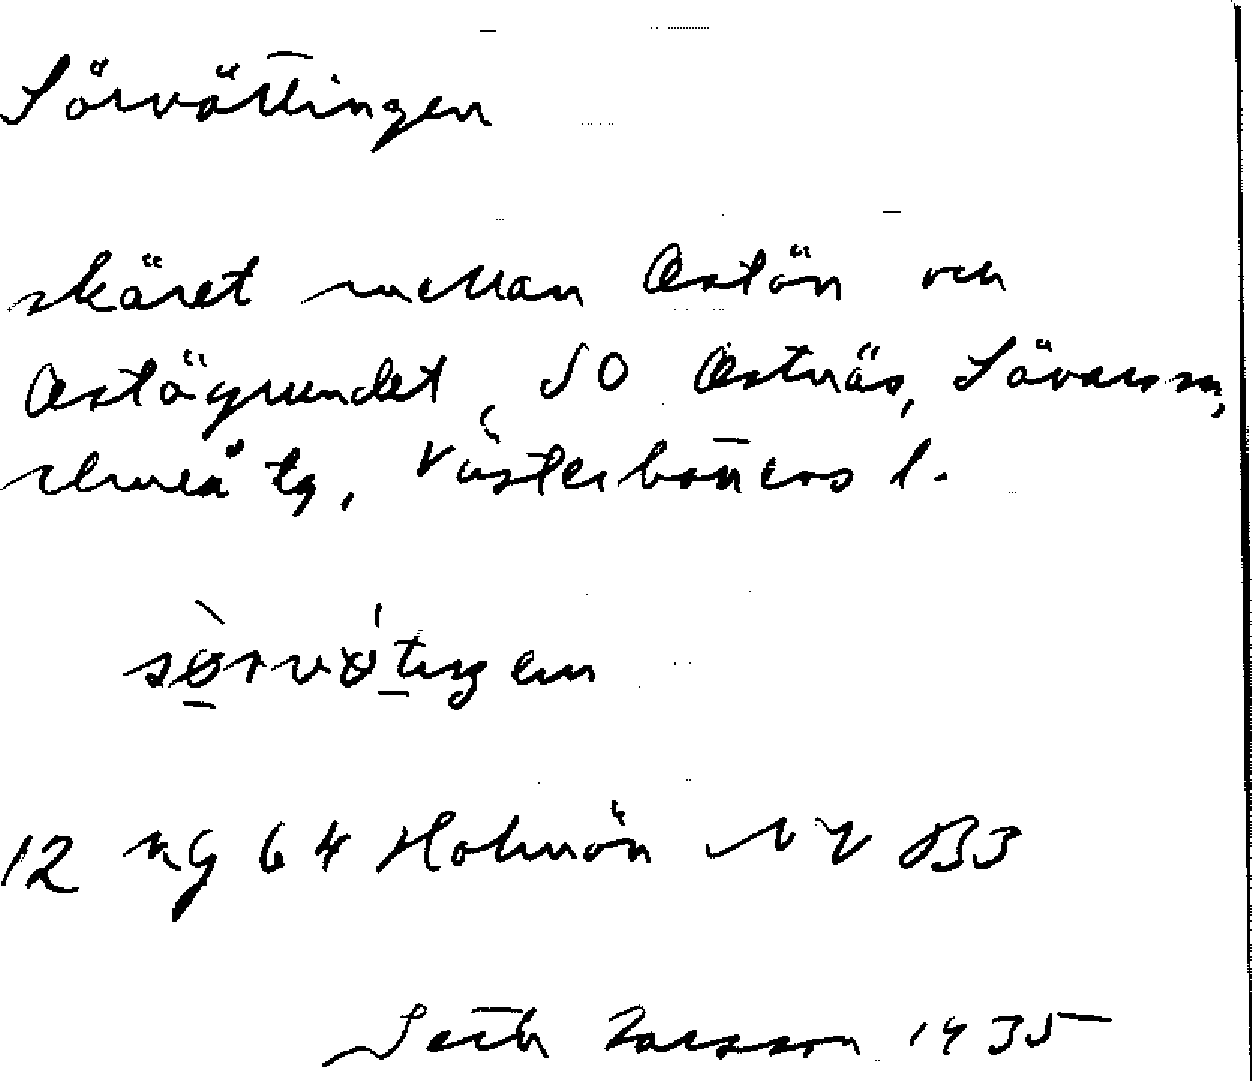 Sörvättingen
skäret mellan Ostön och
Ostögrundet, SO Ostnäs, Sävars sn,
Umeå tg, Västerbottens l.
sørvøtıŋen
12 kg 64 Holmön NV B3
Seth Larsson 1935